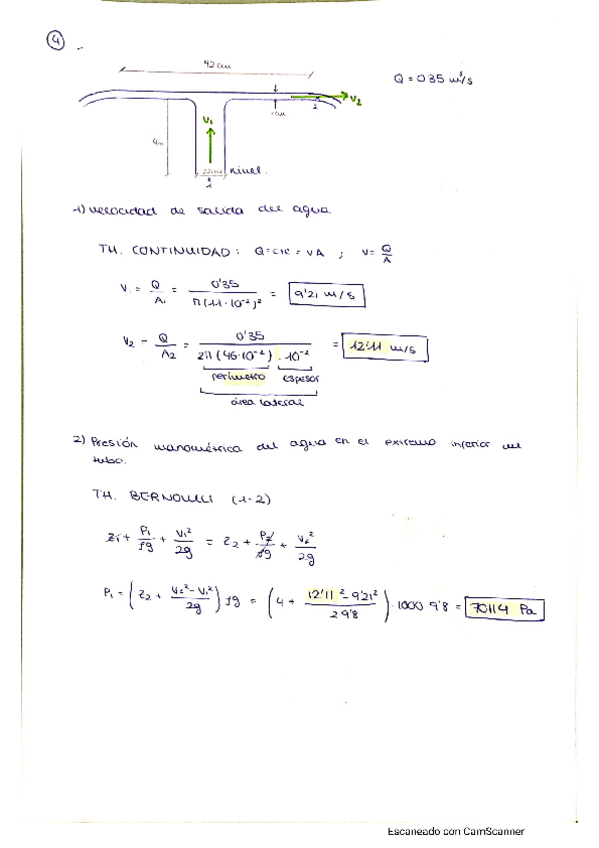 4
92 cm
Q = 0'35 m³/s
V2
1cm
2
V1
4m
22cm nivel.
1
1) Velocidad de salida del agua.
TH. CONTINUIDAD: Q=cte = VA ; V= Q/A
V1 = Q/A1 = 0'35 / π(11·10⁻²)² = 9'21 m/s
V2 = Q/A2 = 0'35 / 2π(46·10⁻²)·10⁻² = 12'11 m/s
perímetro espesor
área lateral
2) Presión manométrica del agua en el extremo inferior del
tubo.
TH. BERNOULLI (1-2)
Z1 + P1/ρg + V1²/2g = Z2 + P2/ρg + V2²/2g
P1 = (Z2 + V2²-V1²/2g) ρg = (4 + 12'11²-9'21²/2 9'8)·1000 9'8 = 70114 Pa
Escaneado con CamScanner